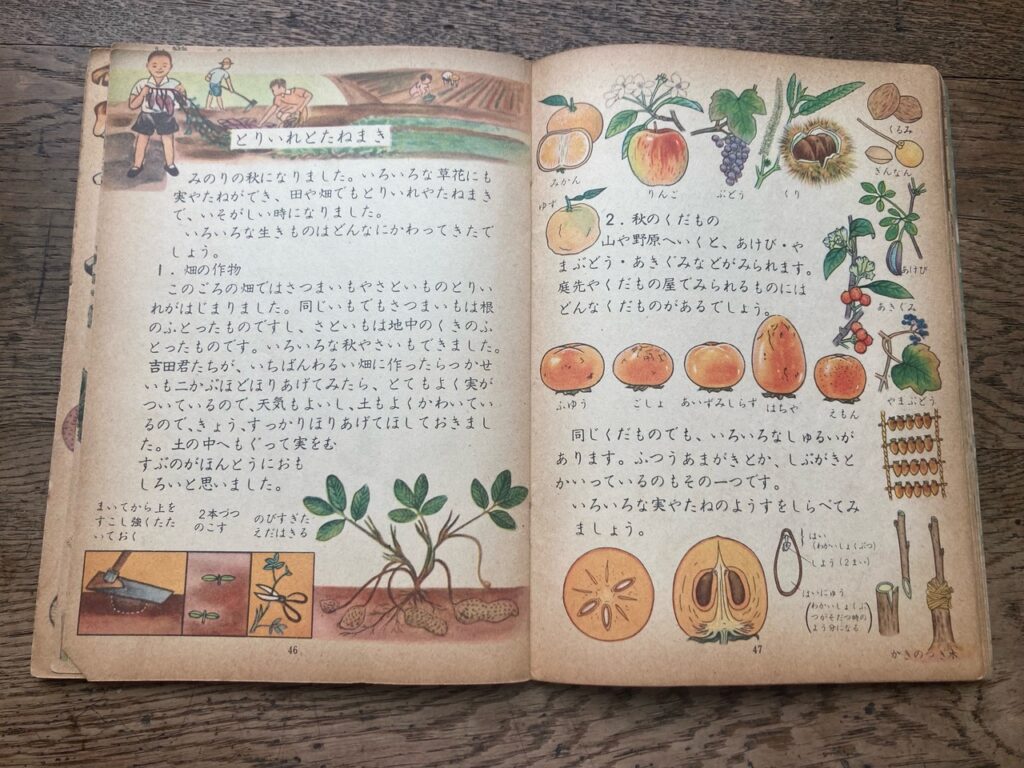 とりいれとたねまき
みのりの秋になりました。いろいろな草花にも
実やたねができ、田や畑でもとりいれやたねまき
で、いそがしい時になりました。
いろいろな生きものはどんなにかわってきたで
しょう。
1．畑の作物
このごろの畑ではさつまいもやさといものとりい
れがはじまりました。同じいもでもさつまいもは根
のふとったものですし、さといもは地中のくきのふ
とったものです。いろいろな秋やさいもできました。
吉田君たちが、いちばんわるい畑に作ったらっかせ
いも二かぶほどほりあげてみたら、とてもよく実が
ついているので、天気もよいし、土もよくかわいてい
るので、きょう、すっかりほりあげてほしておきまし
た。土の中へもぐって実をむ
すぶのがほんとうにおも
しろいと思いました。
まいてから上を
すこし強くたた
いておく
2本づつ
のこす
のびすぎた
えだはきる
46
みかん
りんご
ぶどう
くり
くるみ
ぎんなん
ゆず
2．秋のくだもの
山や野原へいくと、あけび・や
まぶどう・あきぐみなどがみられます。
庭先やくだもの屋でみられるものには
どんなくだものがあるでしょう。
あけび
あきぐみ
やまぶどう
ふゆう
ごしょ
あいずみしらず
はちや
えもん
同じくだものでも、いろいろなしゅるいが
あります。ふつうあまがきとか、しぶがきと
かいっているのもその一つです。
いろいろな実やたねのようすをしらべてみ
ましょう。
はい
(わかいしょくぶつ)
しよう(2まい)
はいにゅう
(わかいしょくぶ
つがそだつ時の
よう分になる)
かきのつぎ木
47